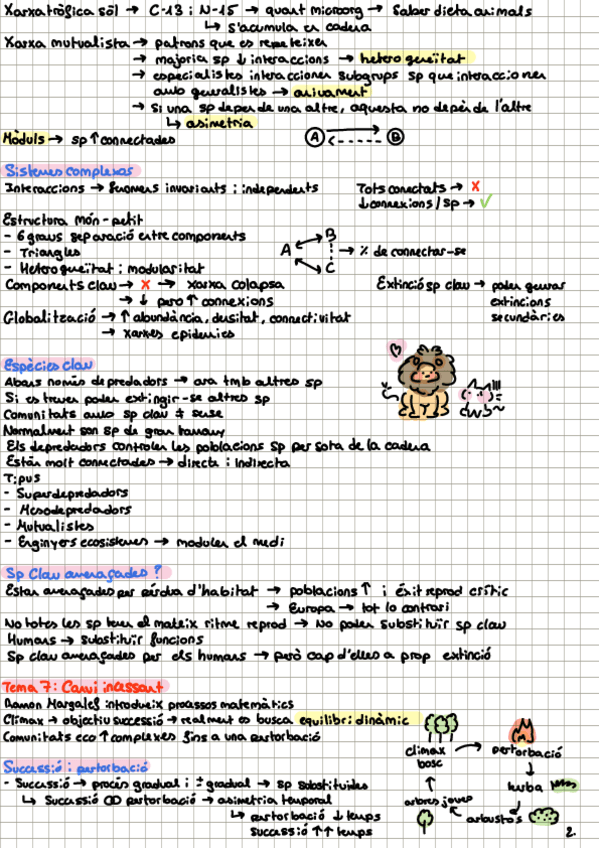 Xarxa tròfica sòl → C-13 i N-15 → quant microorg → Saber dieta animals
↳ S'acumula en cadena
Xarxa mutualista → patrons que es repeteixen
→ majoria sp ↓ interaccions → heterogeneïtat
→ especialistes interaccionen subgrups sp que interaccionen
amb generalistes → aniuament
→ Si una sp depèn de una altre, aquesta no depèn de l'altre
↳ asimetria
Mòduls → sp ↑ connectades
A B
Sistemes complexos
Interaccions → fenomens invariants i independents
Tots conectats → X
↓ connexions / sp → ✓
Estructura món-petit
- 6 graus separació entre components
- Triangles
- Heterogeneïtat i modularitat
A B C → % de connectar-se
Components clau → X → xarxa colapsa
→ ↓ però ↑ connexions
Extinció sp clau → poden generar
extincions
secundàries
Globalització → ↑ abundància, densitat, connectivitat
→ xarxes epidemics
Espècies clau
Abans només depredadors → ara tmb altres sp
Si es treuen poden extingir-se altres sp
Comunitats amb sp clau ≠ sense
Normalment son sp de gran tamany
Els depredadors controlen les poblacions sp per sota de la cadena
Estàn molt connectades → directa i indirecta
Tipus
- Superdepredadors
- Mesodepredadors
- Mutualistes
- Enginyers ecosistemes → modulen el medi
Sp Clau amenaçades ?
Estan amenaçades per pérdua d'habitat → poblacions ↑ i éxit reprod crític
→ Europa → tot lo contrari
No totes les sp tenen el mateix ritme reprod → No poden substituïr sp clau
Humans → substituïr funcions
Sp clau amenaçades per els humans → però cap d'elles a prop extinció
Tema 7: Canvi incessant
Ramon Margalef introdueix processos matemàtics
Climax → objectiu successió → realment es busca equilibri dinàmic
Comunitats eco ↑ complexes fins a una pertorbació
climax
bosc
pertorbació
herba
arbustos
arbres joves
Successió i pertorbació
- Successió → procés gradual i ± gradual → sp substituïdes
↳ Successió pertorbació → asimetria temporal
↳ pertorbació ↓ temps
successió ↑↑ temps
2.